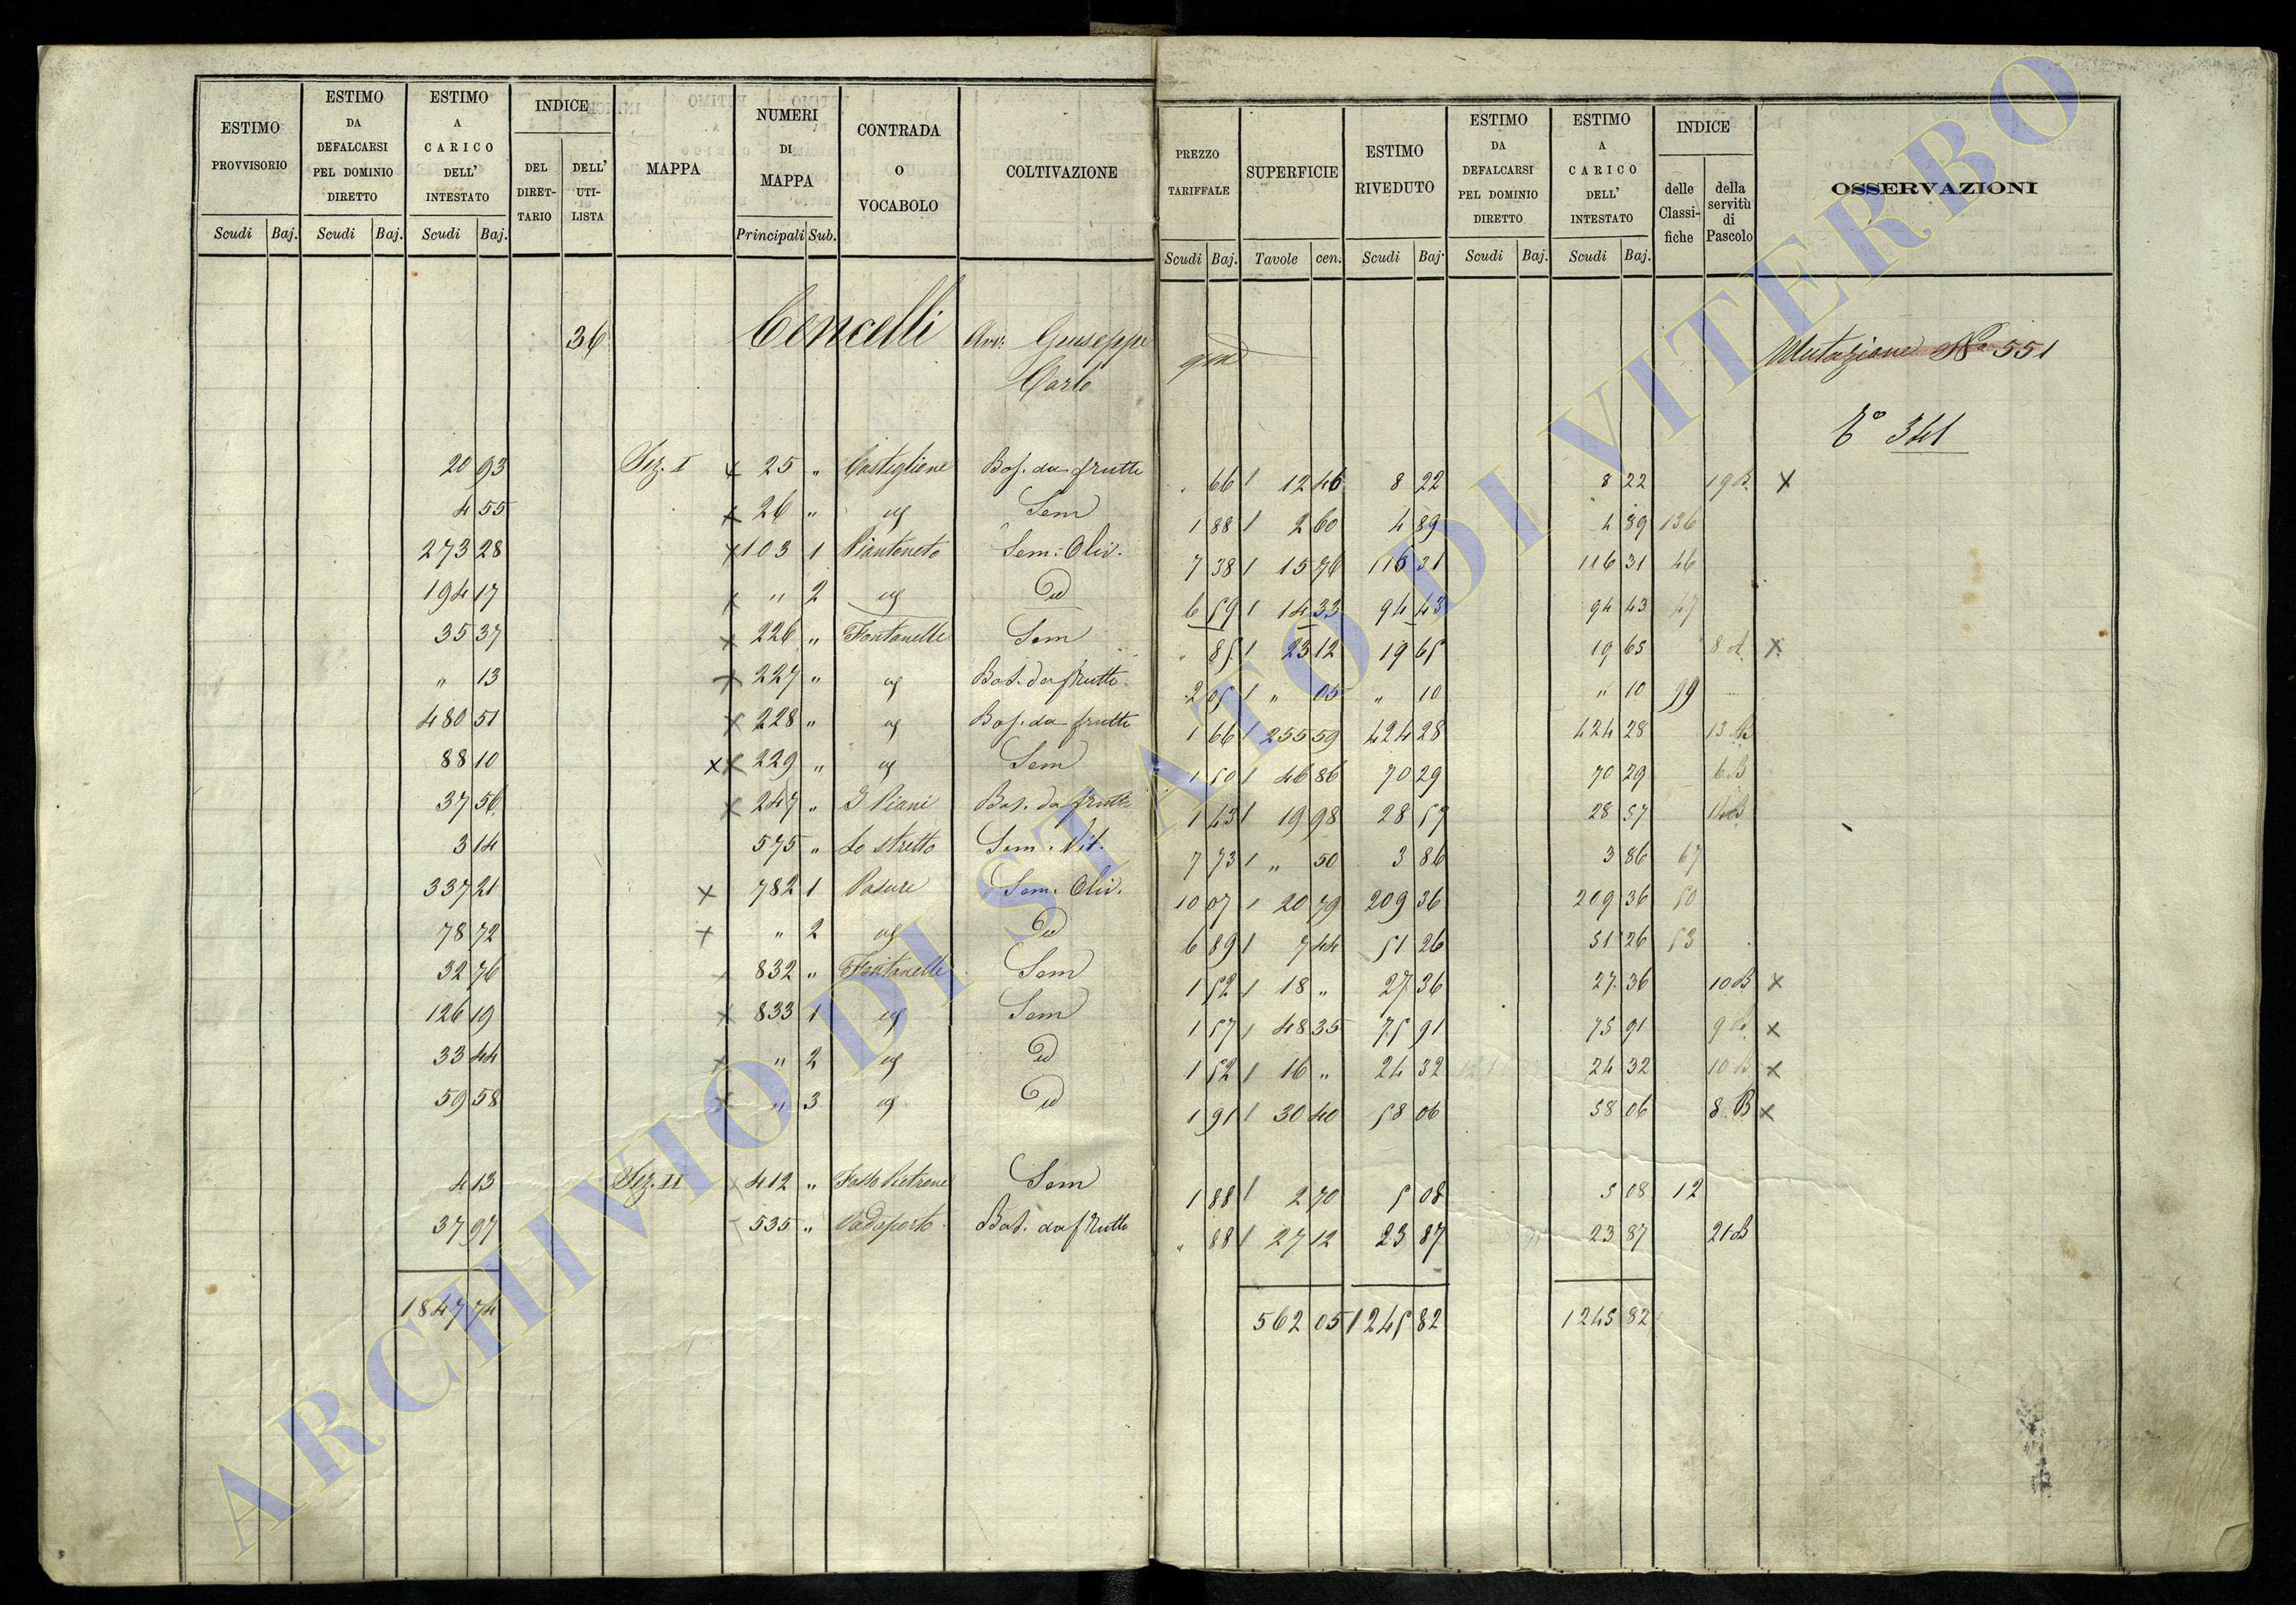 ESTIMO PROVVISORIO | ESTIMO DA DEFALCARSI PEL DOMINIO DIRETTO | ESTIMO A CARICO DELL' INTESTATO | INDICE DEL DIRET-TARIO | DELL' UTI-LISTA | MAPPA | NUMERI DI MAPPA | CONTRADA O VOCABOLO | COLTIVAZIONE | PREZZO TARIFFALE | SUPERFICIE | ESTIMO RIVEDUTO | ESTIMO DA DEFALCARSI PEL DOMINIO DIRETTO | ESTIMO A CARICO DELL' INTESTATO | INDICE delle Classi-fiche | della servitù di Pascolo | OSSERVAZIONI
Scudi Baj. | Scudi Baj. | Scudi Baj. | Principali Sub. | Scudi Baj. | Tavole cen. | Scudi Baj. | Scudi Baj. | Scudi Baj.
36 Cencelli Avv: Giuseppe qm Mutazione No 551
Carlo
To 341
20 93 Sez. I x 25 " Castiglione Bos. da frutto " 66 / 12 46 8 22 8 22 19 B. x
4 55 x 26 " ug Sem 1 88 / 2 60 4 89 4 89 136
273 28 x 103 1 Piantoneto Sem: Oliv. 7 38 / 15 76 116 31 116 31 46
194 17 x " 2 ug Id 6 59 / 14 33 94 43 94 43 47
35 37 x 226 " Fontanelle Sem " 85 / 23 12 19 65 19 65 8 A. x
" 13 x 227 " ug Bos. da frutto 2 05 / " 05 " 10 " 10 99
480 51 x 228 " ug Bos. da frutto 1 66 / 255 59 424 28 424 28 13 B
88 10 xx 229 " ug Sem 1 50 / 46 86 70 29 70 29 6 B
37 56 x 247 " I Piani Bos. da frutto 1 43 / 19 98 28 57 28 57 14 B
3 14 575 " Lo stretto Sem. Vit. 7 73 / " 50 3 86 3 86 67
337 21 x 782 1 Sem. Oliv. 10 07 / 20 79 209 36 209 36 50
78 72 x " 2 ug Id 6 89 / 7 44 51 26 51 26 53
32 76 x 832 " Fontanelle Sem 1 52 / 18 " 27 36 27 36 10 B x
126 19 x 833 1 ug Sem 1 57 / 48 35 75 91 75 91 9 x
33 44 x " 2 ug Id 1 52 / 16 " 24 32 24 32 10 B x
59 58 x " 3 ug Id 1 91 / 30 40 58 06 58 06 8 B x
4 13 Sez. II x 412 " Fosso Pietrone Sem 1 88 / 2 70 5 08 5 08 12
37 97 535 " Bos. da frutto " 88 / 27 12 23 87 23 87 21 B
1847 74 562 05 1245 82 1245 82
ARCHIVIO DI STATO DI VITERBO